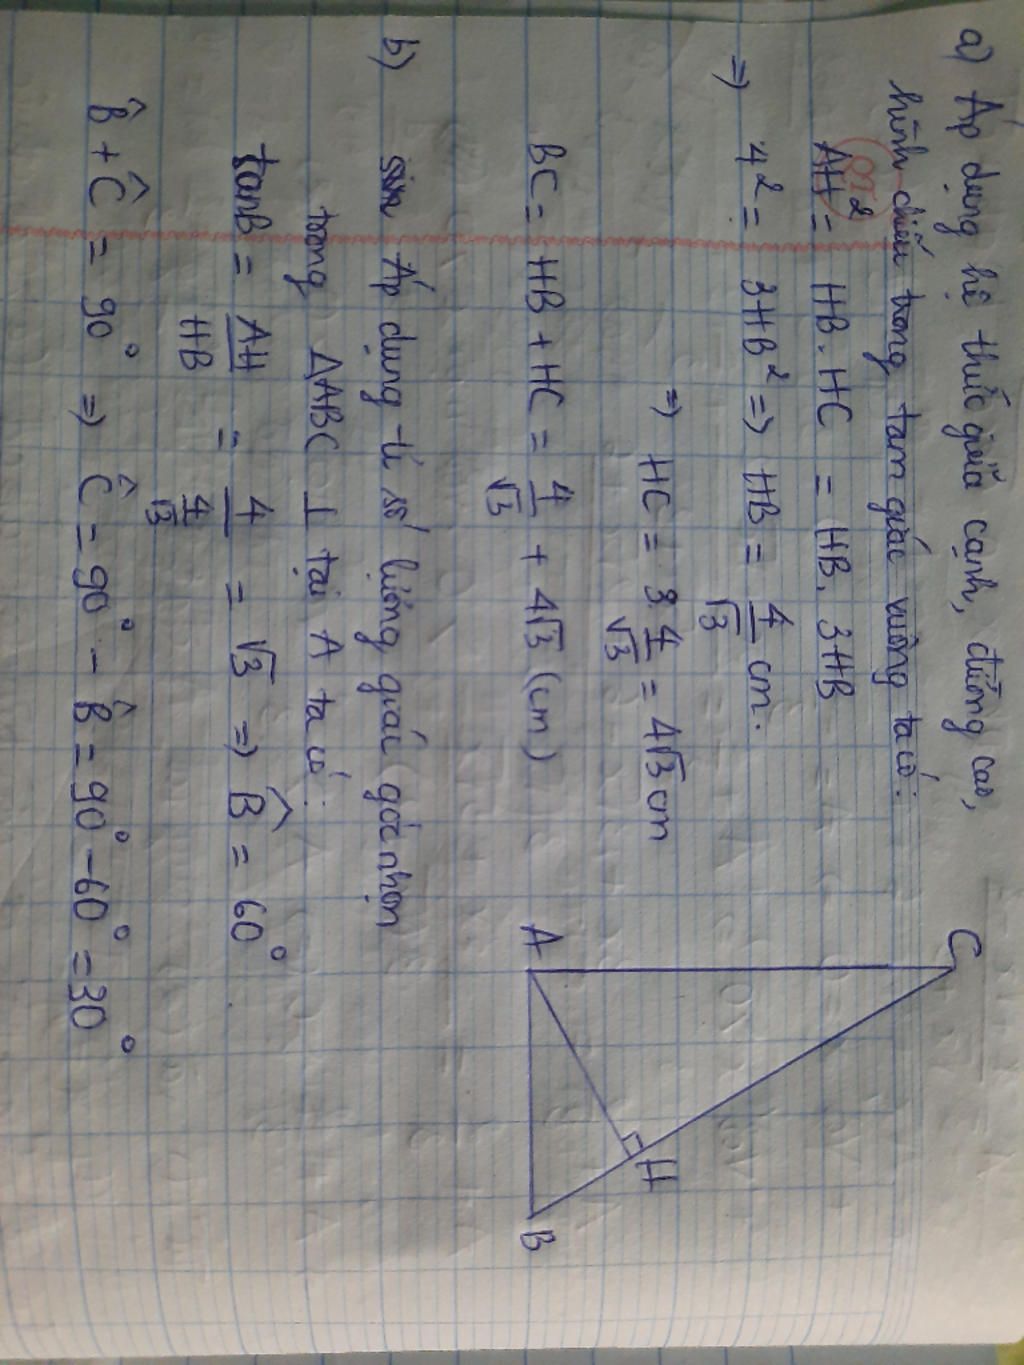 a) Áp dụng hệ thức giữa cạnh, đường cao,
hình chiếu trong tam giác vuông ta có:
AH² = HB. HC = HB. 3HB
⇒ 4² = 3HB² ⇒ HB = 4/√3 cm.
⇒ HC = 3. 4/√3 = 4√3 cm
BC = HB + HC = 4/√3 + 4√3 (cm)
b) Áp dụng tỉ số lượng giác góc nhọn
trong ΔABC ⊥ tại A ta có:
tanB = AH/HB = 4/(4/√3) = √3 ⇒ B̂ = 60°.
B̂ + Ĉ = 90° ⇒ Ĉ = 90° - B̂ = 90° - 60° = 30°
C
A
H
B